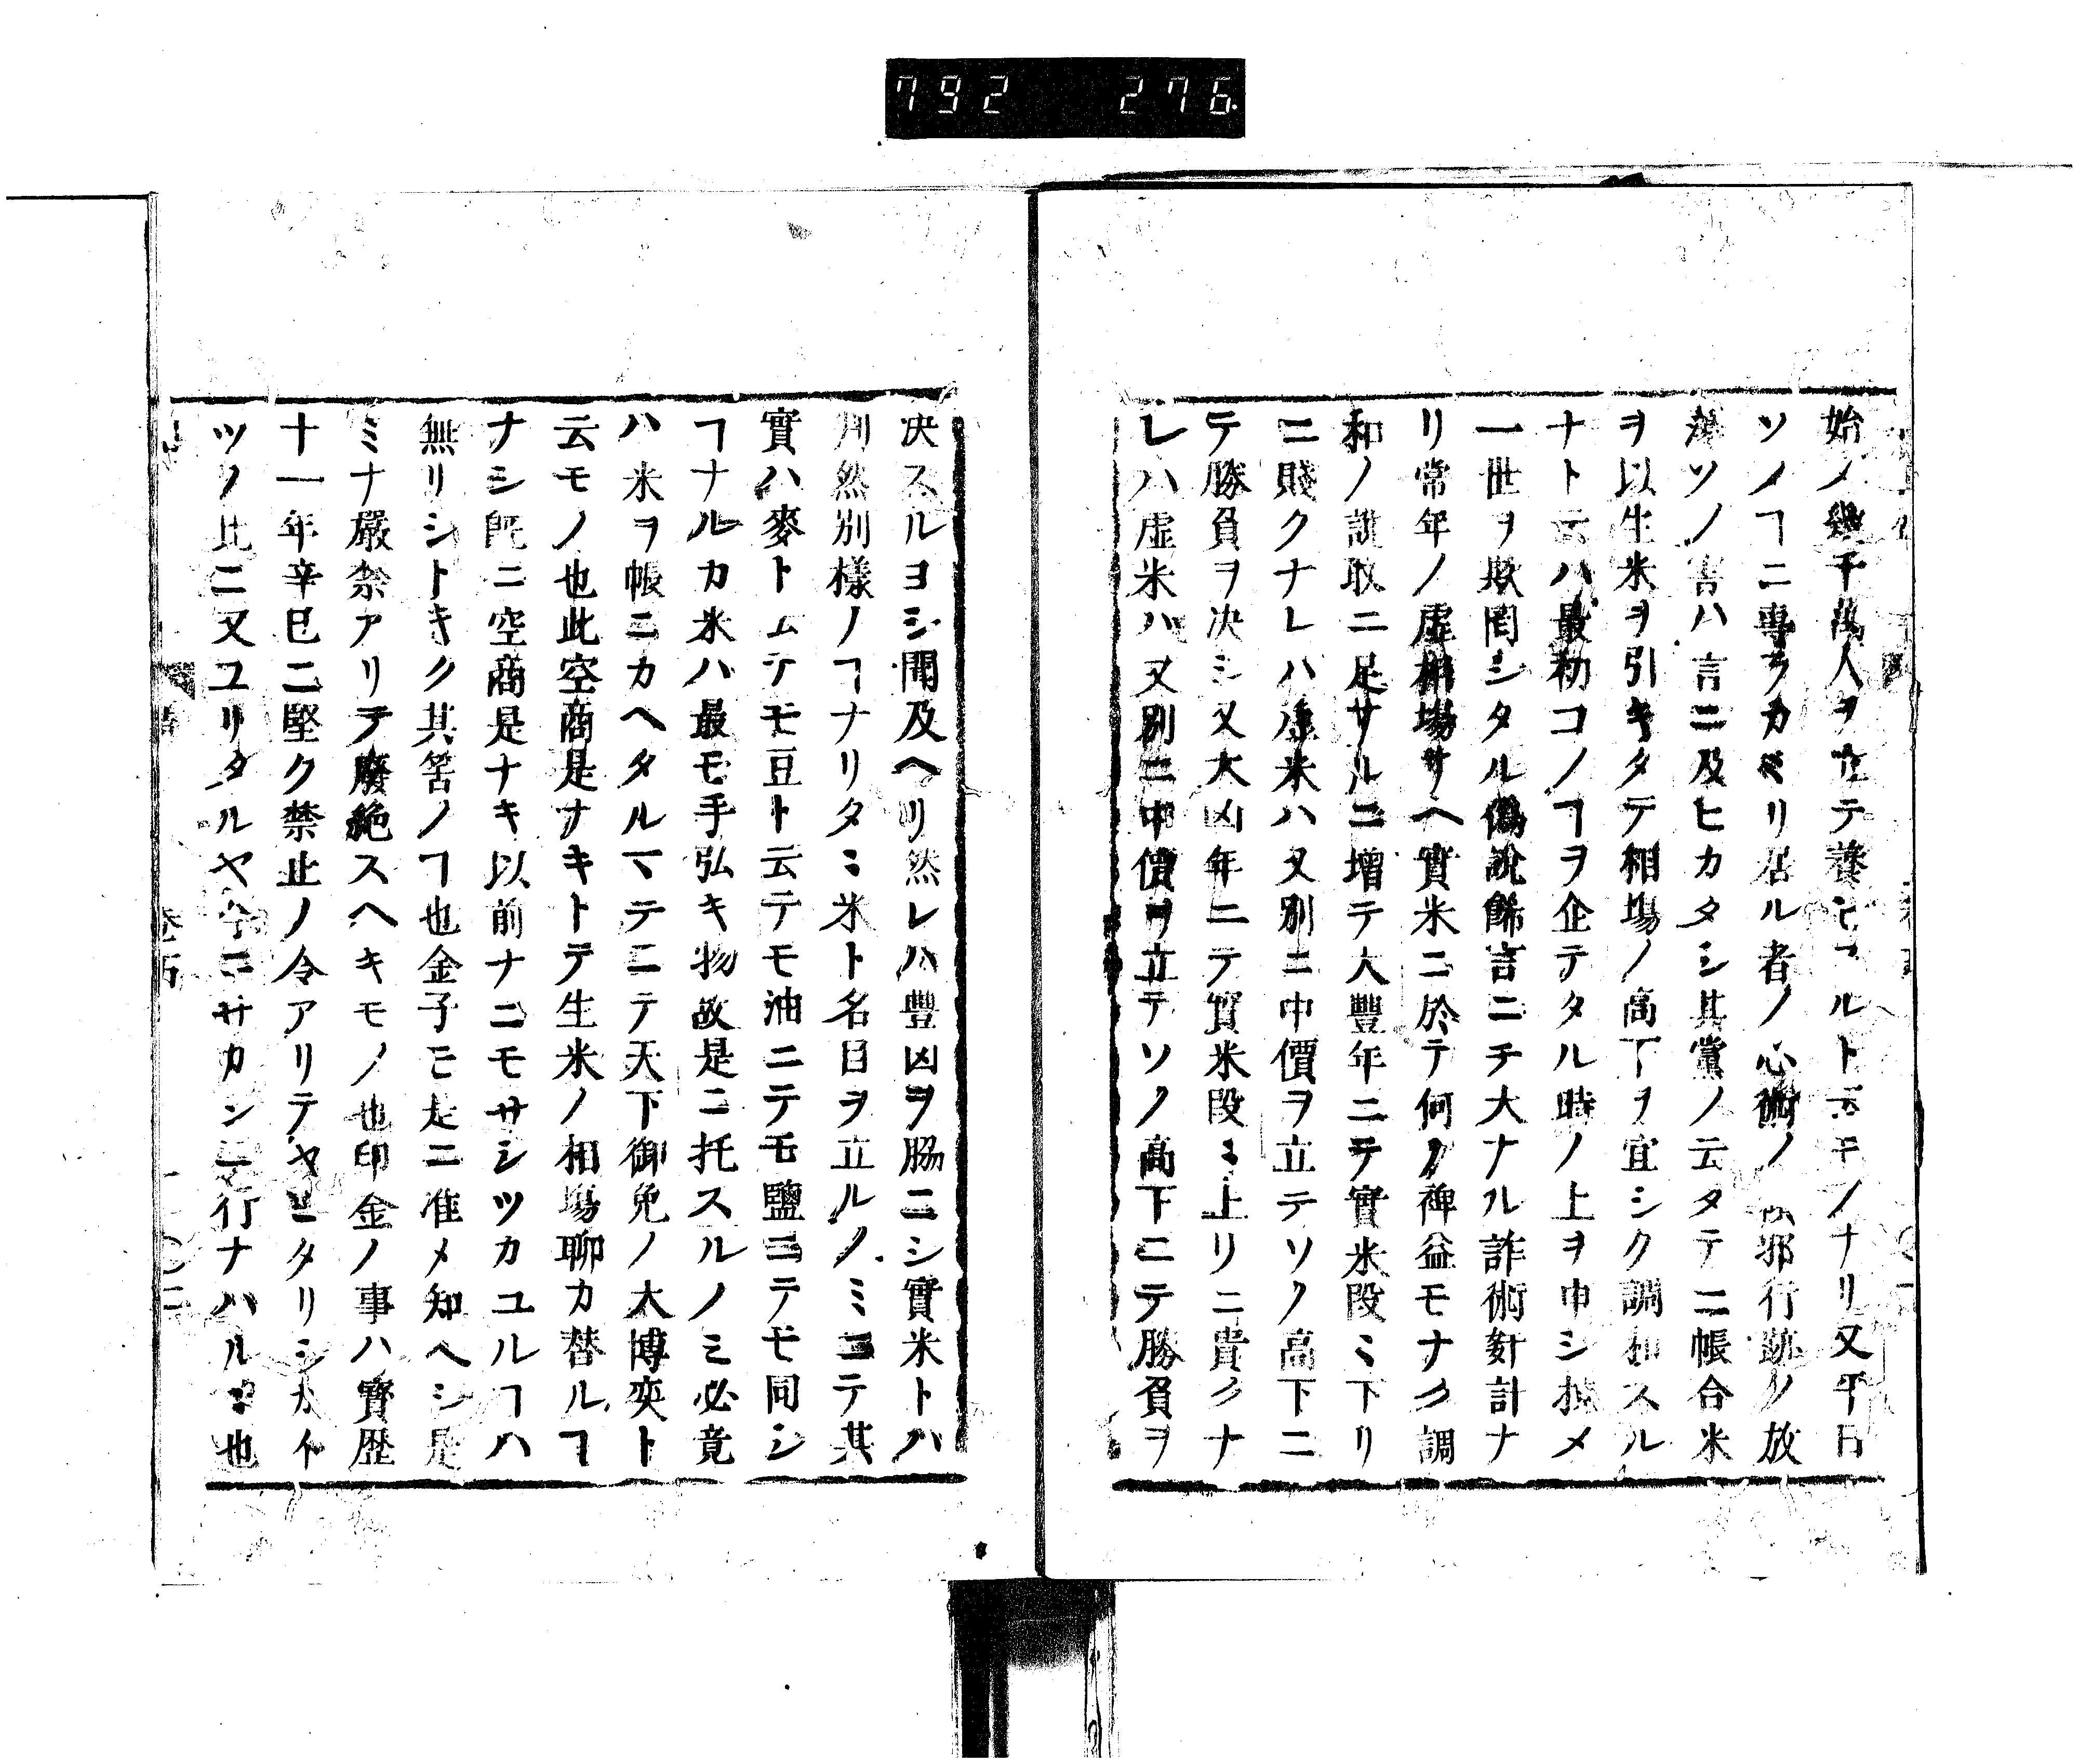 792 276
始メ幾千萬人ヲ立テ養ヒコルト云モノナリ又平日
ソノヿニ專ラカミリ居ル者ノ心術ノ邪行跡ノ放
蕩ソノ害ハ言ニ及ヒカタシ其黨ノ云タテニ帳合米
ヲ以生米ヲ引キタテ相塲ノ高下ヲ宜シク調和スル
ナト云ハ最初コノヿヲ企テタル時ノ上ヲ申シ掠メ
一世ヲ欺罔シタル僞說餙言ニチ大ナル詐術姧計ナ
リ常年ノ虛相場サヘ實米ニ於テ何ノ裨益モナク調
和ノ說取ニ足サルニ增テ大豐年ニテ實米段ミ下リ
ニ賤クナレハ虛米ハ又別ニ中價ヲ立テソノ高下ニ
テ勝負ヲ决シ又大凶年ニテ實米段ミ上リニ貴クナ
レハ虛米ハ又別ニ中價ヲ立テソノ高下ニテ勝負ヲ
决スルヨシ聞及ヘリ然レハ豐凶ヲ脇ニシ實米トハ
判然別樣ノヿナリタミ米ト名目ヲ立ルノミニテ其
實ハ麥トムテモ豆ト云テモ油ニテモ鹽ニテモ同シ
ヿナルカ米ハ最モ手弘キ物故是ニ托スルノミ必竟
ハ米ヲ帳ニカヘタルマテニテ天下御免ノ大博奕ト
云モノ也此空商是ナキトテ生米ノ相塲聊カ替ルヿ
ナシ既ニ空商是ナキ以前ナニモサシツカユルヿハ
無リシトキク其筈ノヿ也金子モ是ニ准メ知ヘシ是
ミナ嚴禁アリテ廢絶スヘキモノ也印金ノ事ハ寳歴
十一年辛巳ニ堅ク禁止ノ令アリテヤミタリシカイ
ツノ比ニ又ユリタルヤ今ニサカンニ行ナハルヽ也